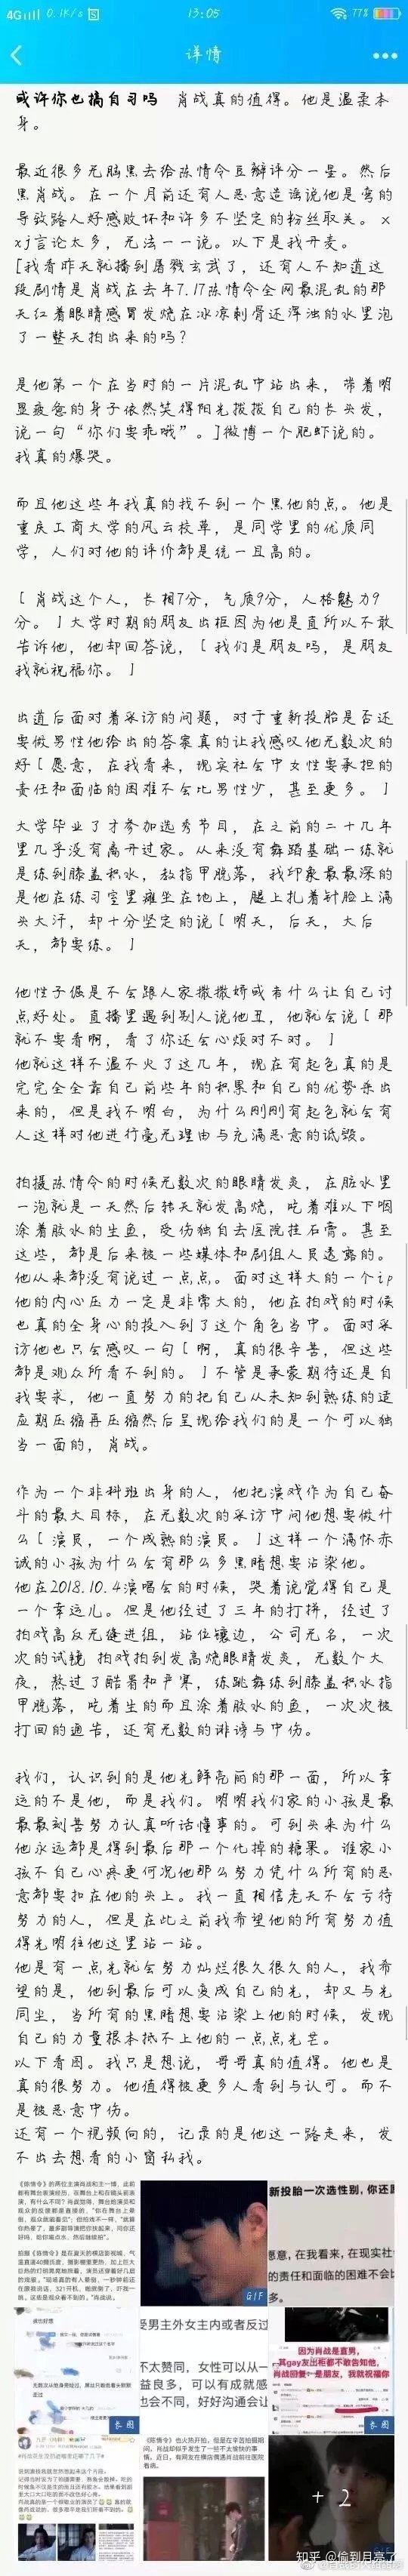 4G 0.1K/s 13:05 77%
详情
或许你也搞自习吗 肖战真的值得。他是温柔本
身。
最近很多无脑黑去给陈情令豆瓣评分一星。然后
黑肖战。在一个月前还有人恶意造谣说他是弯的
导致路人好感败坏和许多不坚定的粉丝取关。x
xj言论太多，无法一一说。以下是我开麦。
[我看昨天就播到屠戮玄武了，还有人不知道这
段剧情是肖战在去年7.17陈情令全网最混乱的那
天红着眼睛感冒发烧在冰凉刺骨还浑浊的水里泡
了一整天拍出来的吗？
是他第一个在当时的一片混乱中站出来，带着明
显疲惫的身子依然笑得阳光拨拨自己的长头发，
说一句“你们要乖哦”。]微博一个肥虾说的。
我真的爆哭。
而且他这些年我真的找不到一个黑他的点。他是
重庆工商大学的风云校草，是同学里的优质同
学，人们对他的评价都是统一且高的。
[ 肖战这个人，长相7分，气质9分，人格魅力9
分。 ]大学时期的朋友出柜因为他是直所以不敢
告诉他，他却回答说，[ 我们是朋友吗，是朋友
我就祝福你。 ]
出道后面对着采访的问题，对于重新投胎是否还
要做男性他给出的答案真的让我感叹他无数次的
好[ 愿意，在我看来，现实社会中女性要承担的
责任和面临的困难不会比男性少，甚至更多。 ]
大学毕业了才参加选秀节目，在之前的二十几年
里几乎没有离开过家。从来没有舞蹈基础一练就
是练到膝盖积水，教指甲脱落，我印象最最深的
是他在练习室里瘫坐在地上，腿上扎着针脸上满
头大汗，却十分坚定的说[ 明天，后天，大后
天，都要练。 ]
他性子倔是不会跟人家撒撒娇或者什么让自己讨
点好处。直播里遇到别人说他丑，他就会说[ 那
就不要看啊，看了你还会心烦对不对。 ]
他就这样不温不火了这几年，现在有起色真的是
完完全全靠自己前些年的积累和自己的优势杀出
来的，但是我不明白，为什么刚刚有起色就会有
人这样对他进行毫无理由与充满恶意的诋毁。
拍摄陈情令的时候无数次的眼睛发炎，在脏水里
一泡就是一天然后转天就发高烧，吃着难以下咽
涂着胶水的生鱼，受伤独自去医院挂石膏。甚至
这些，都是后来被一些媒体和剧组人员透露的。
他从来都没有说过一点点。面对这样大的一个ip
他的内心压力一定是非常大的，他在拍戏的时候
也真的全身心的投入到了这个角色当中。面对采
访他也只会感叹一句[ 啊，真的很辛苦，但这些
都是观众所看不到的。 ]不管是承蒙期待还是自
我要求，他一直努力的把自己从未知到熟练的适
应期压缩再压缩然后呈现给我们的是一个可以独
当一面的，肖战。
作为一个非科班出身的人，他把演戏作为自己奋
斗的最大目标，在无数次的采访中问他想要做什
么[ 演员，一个成熟的演员。 ]这样一个满怀赤
诚的小孩为什么会有那么多黑暗想要沾染他。
他在2018.10.4演唱会的时候，哭着说觉得自己是
一个幸运儿。但是他经过了三年的打拼，经过了
拍戏高反无缝进组，站位镶边，公司无名，一次
次的试镜 拍戏拍到发高烧眼睛发炎，无数个大
夜，熬过了酷暑和严寒，练跳舞练到膝盖积水指
甲脱落，吃着生的而且涂着胶水的鱼，一次次被
打回的通告，还有无数的诽谤与中伤。
我们，认识到的是他光鲜亮丽的那一面，所以幸
运的不是他，而是我们。明明我们家的小孩是最
最最刻苦努力认真听话懂事的。可到头来为什么
他永远都是得到最后那一个化掉的糖果。谁家小
孩不自己心疼更何况他那么努力凭什么所有的恶
意都要扣在他的头上。我一直相信老天不会亏待
努力的人，但是在此之前我希望他的所有努力值
得光明往他这里站一站。
他是有一点光就会努力灿烂很久很久的人，我希
望的是，他到最后可以变成自己的光，却又与光
同尘，当所有的黑暗想要沾染上他的时候，发现
自己的力量根本抵不上他的一点点光芒。
以下看图。我只是想说，哥哥真的值得。他也是
真的很努力。他值得被更多人看到与认可。而不
是被恶意中伤。
还有一个视频向的，记录的是他这一路走来，发
不出去想看的小窗私我。
新投胎一次选性别，你还愿
愿意，在我看来，在现实社
任和面临的困难不会比男
多。
GIF
受男主外女主内或者反过
不太赞同，女性可以从一
益良多，可以有成就感
也会不同，好好沟通会让
因为肖战是直男，
其gay发出柜都不敢告知他，
肖战回复个是朋友，我就祝福你
长图
长图
+2
知乎 @偷到月亮了